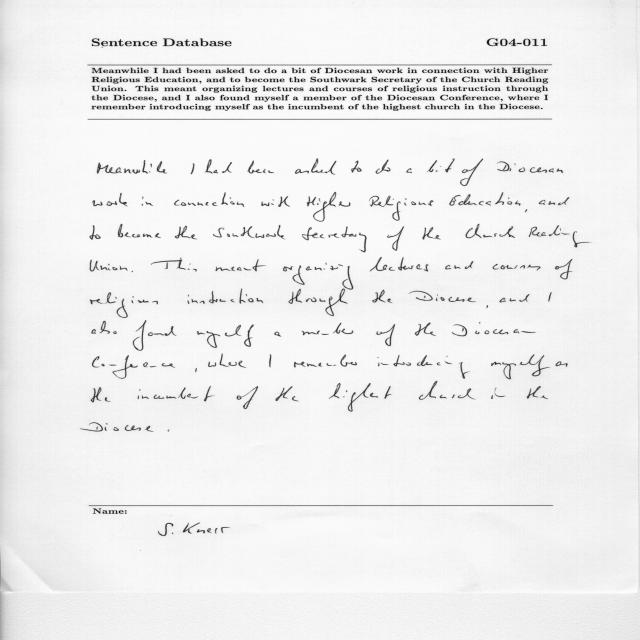 Sentence Database G04-011
Meanwhile I had been asked to do a bit of Diocesan work in connection with Higher
Religious Education, and to become the Southwark Secretary of the Church Reading
Union. This meant organizing lectures and courses of religious instruction through
the Diocese, and I also found myself a member of the Diocesan Conference, where I
remember introducing myself as the incumbent of the highest church in the Diocese.
Meanwhile I had been asked to do a bit of Diocesan
work in connection with Higher Religious Education, and
to become the Southwark Secretary of the Church Reading
Union. This meant organizing lectures and courses of
religious instruction through the Diocese, and I
also found myself a member of the Diocesan
Conference, where I remember introducing myself as
the incumbent of the highest church in the
Diocese.
Name:
S.